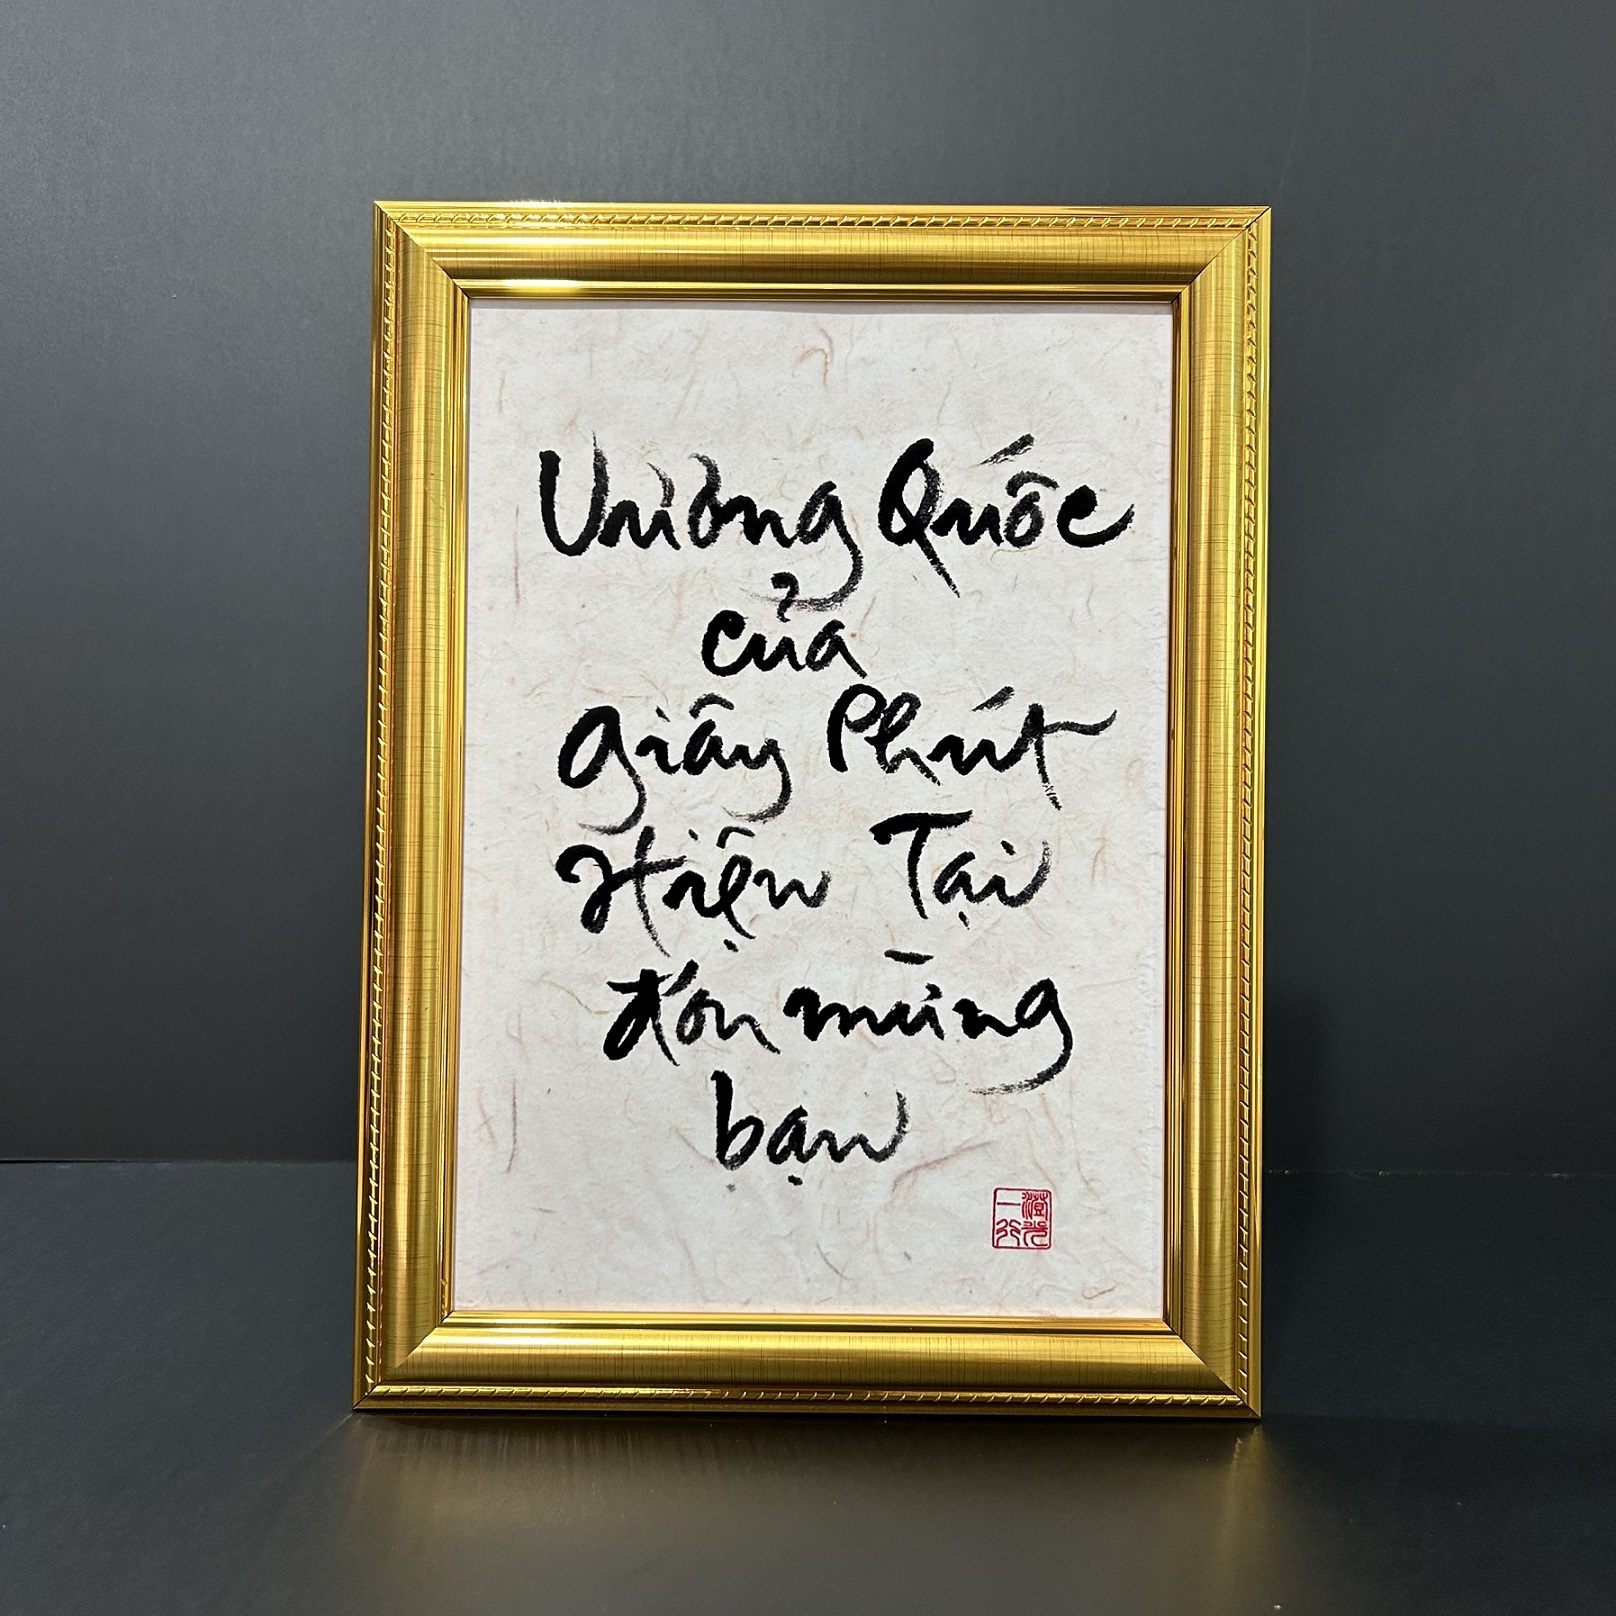 Vương Quốc
của
giây Phút
Hiện Tại
đón mừng
bạn
澄光
一行